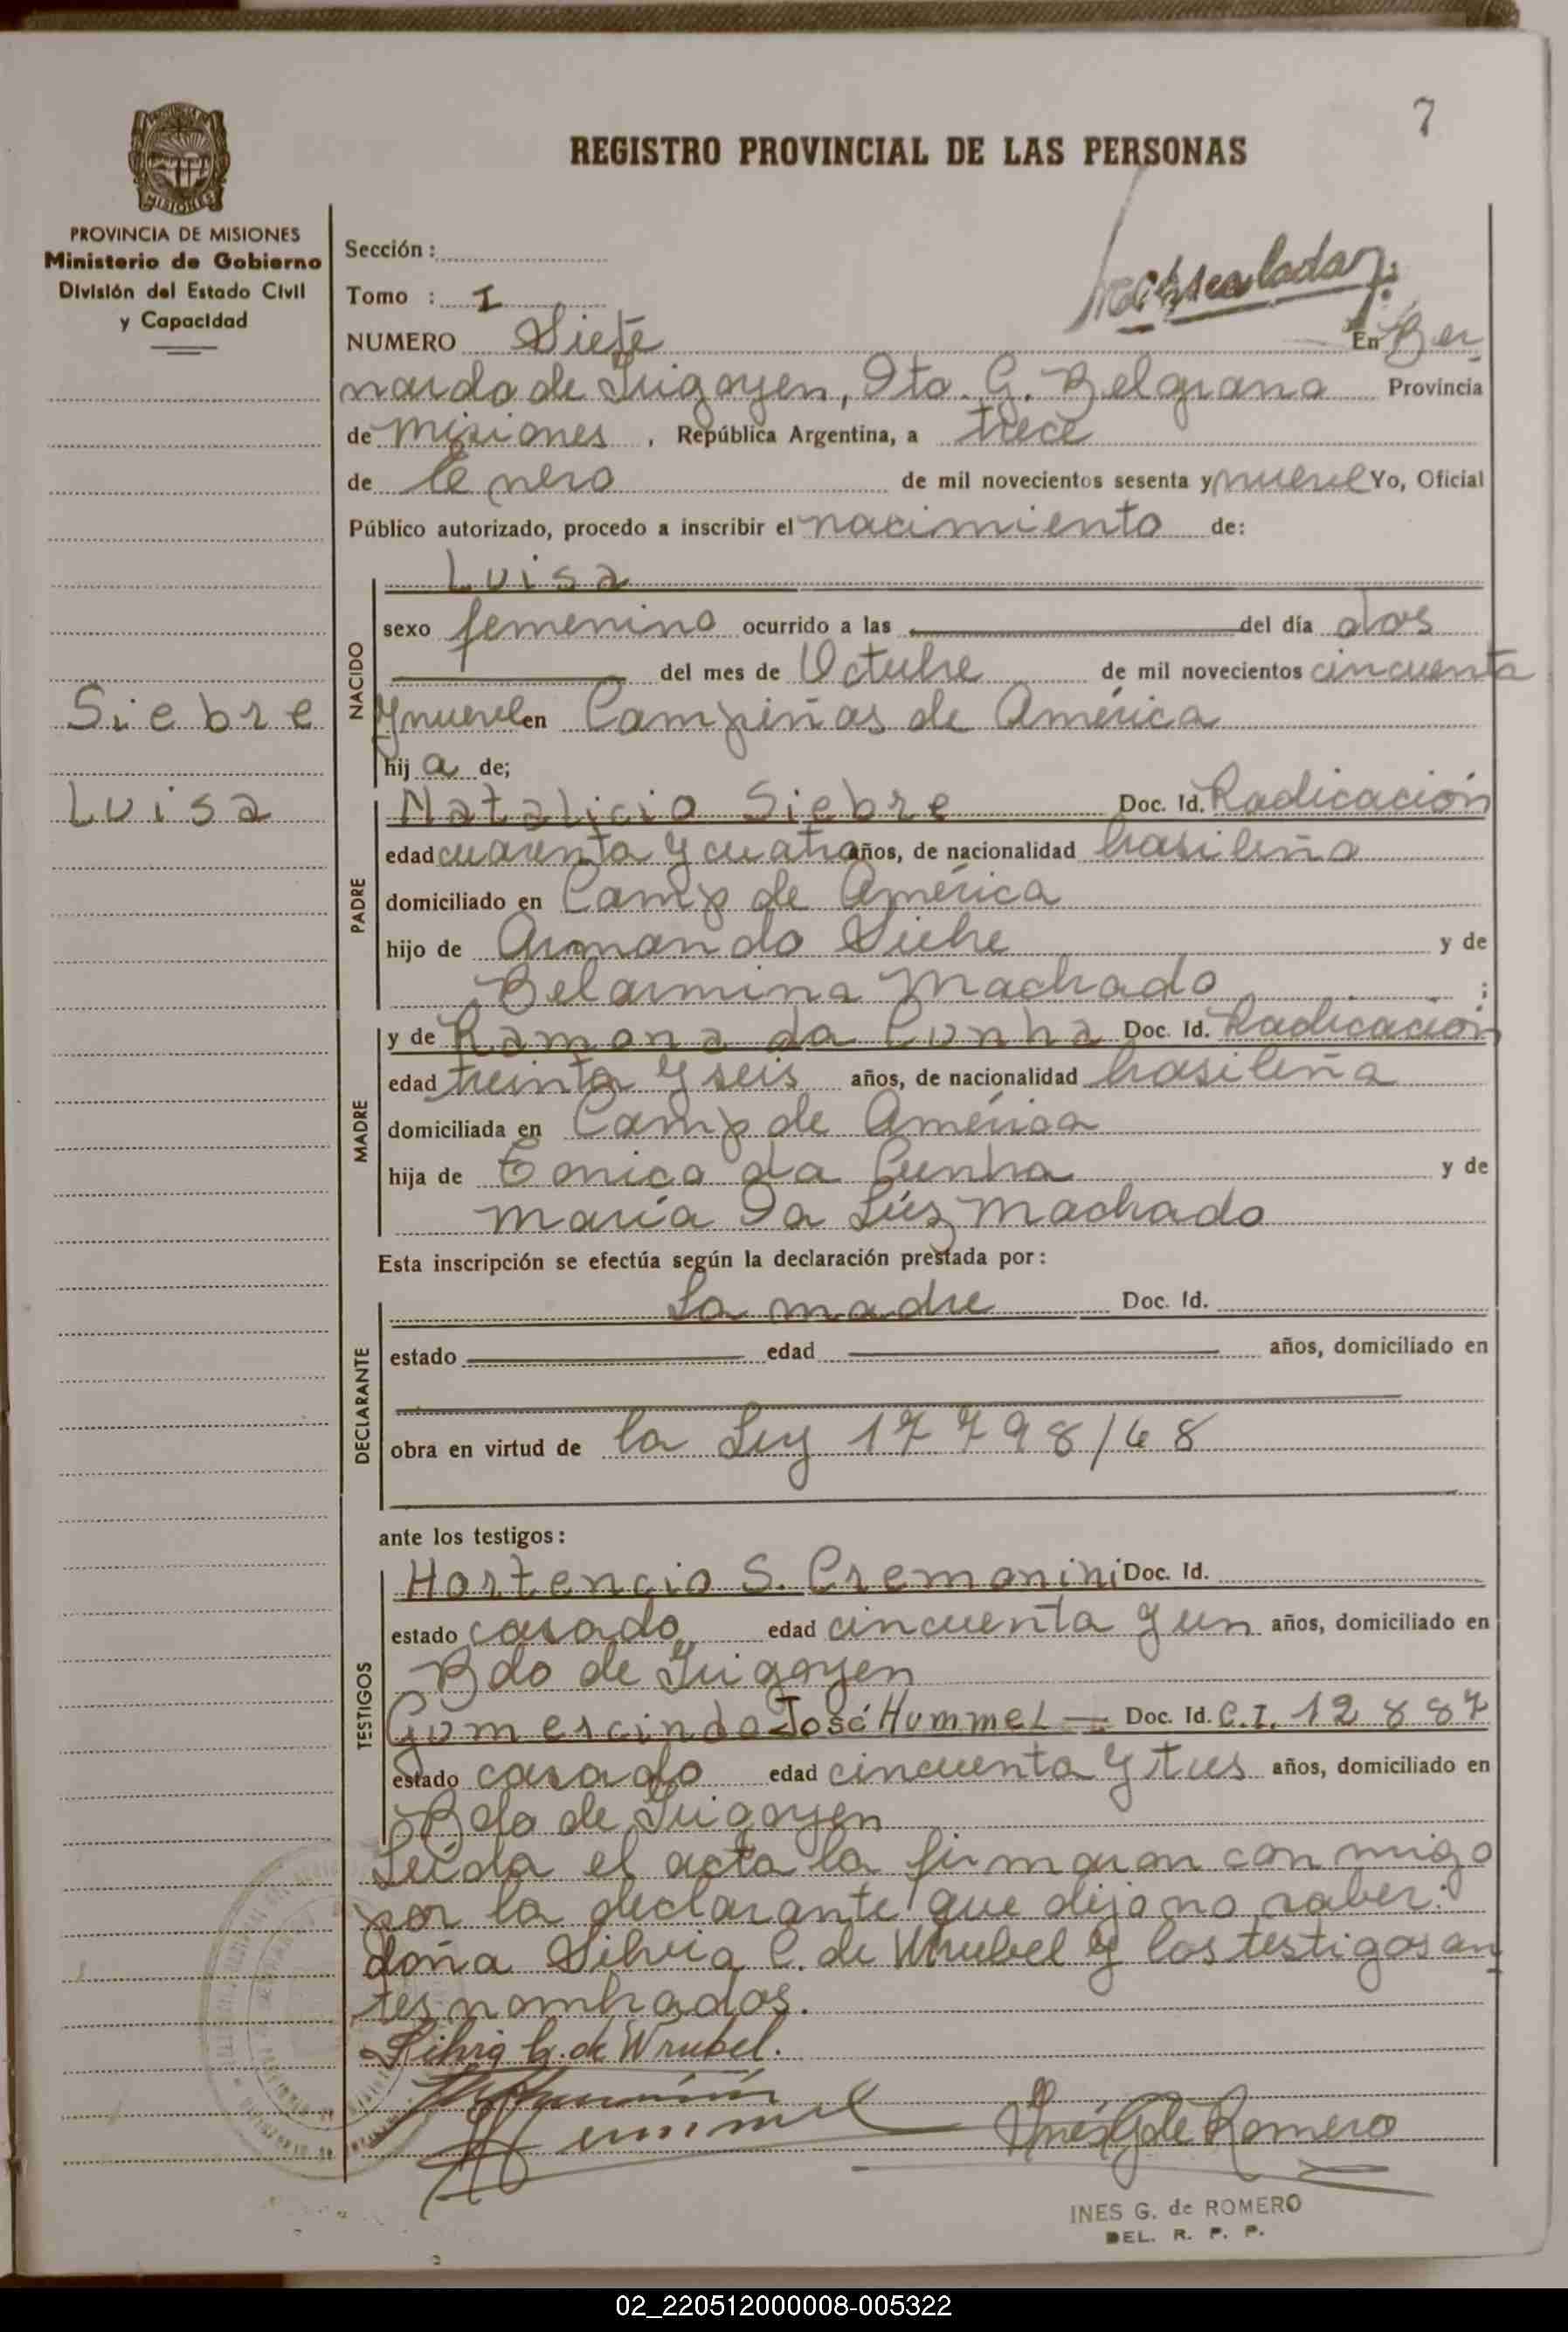 7
REGISTRO PROVINCIAL DE LAS PERSONAS
MISIONES
PROVINCIA DE MISIONES
Ministerio de Gobierno
División del Estado Civil
y Capacidad
Sección :
Tomo : I
NUMERO Siete En Ber
nardo de Irigoyen, Dto. G. Belgrano Provincia
de Misiones , República Argentina, a trece
de Enero de mil novecientos sesenta y nueve Yo, Oficial
Público autorizado, procedo a inscribir el nacimiento de:
NACIDO
Luisa
sexo femenino ocurrido a las del día dos
del mes de Octubre de mil novecientos cincuenta
y nueve en Campiñas de América
hij a de;
Siebre
Luisa
PADRE
Natalicio Siebre Doc. Id. Radicación
edad cuarenta y cuatro años, de nacionalidad brasileña
domiciliado en Camp de América
hijo de Armando Siebre y de
Belarmina Machado ;
MADRE
y de Ramona da Cunha Doc. Id. Radicación
edad treinta y seis años, de nacionalidad brasileña
domiciliada en Camp de América
hija de da Cunha y de
María Da Lúz Machado
Esta inscripción se efectúa según la declaración prestada por :
DECLARANTE
La madre Doc. Id.
estado edad años, domiciliado en
obra en virtud de la Ley 17798/68
ante los testigos :
TESTIGOS
Hortencio S. Cremonini Doc. Id.
estado casado edad cincuenta y un años, domiciliado en
Bdo de Irigoyen
Gumercindo José Hummel Doc. Id. C.I. 12887
estado casado edad cincuenta y tres años, domiciliado en
Bdo de Irigoyen
Leída el acta la firmaron con migo
por la declarante que dijo no saber:
doña Silvia C. de Wrubel y los testigos an
tes nombrados.
Silvia C. de Wrubel.
Hummel
Inés G de Romero
INES G. de ROMERO
DEL. R. P. P.
02_220512000008-005322